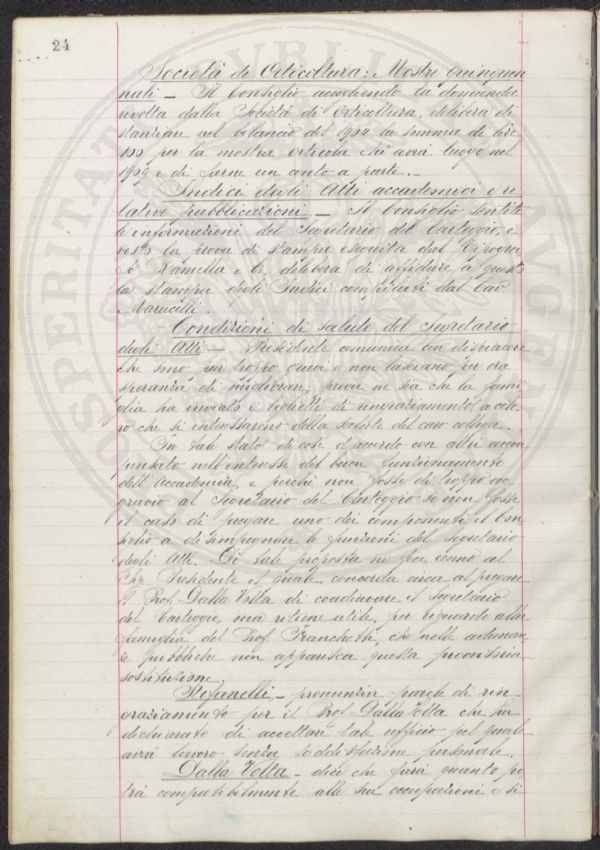 24
Società di Orticoltura: Mostre Quinquen
nali _ Il Consiglio accogliendo la domanda
rivolta dalla Società di Orticoltura, delibera di
stanziare nel bilancio del 1904 la somma di lire
100 per la mostra orticola che avrà luogo nel
1909 e di farne un conto a parte._
Indici degli Atti accademici e re
lative pubblicazioni _ Il Consiglio sentite
le informazioni del Secretario del Carteggio, e
vista la prova di stampa eseguita dal
Ramella e C. delibera di affidare a questo
la stampa degli Indici compilati dal Cav
Marucelli.
Condizioni di salute del Secretario
degli Atti _ Presidente comunica con dispiacere
che sono pur troppo gravi e non lasciano per ora
speranza di migliorare, prova ne sia che la fami
glia ha inviato i biglietti di ringraziamento a colo
ro che si interessarono della salute del caro collega.
In tale stato di cose d'accordo con altri aveva
pensato nell'interesse del buon funzionamento
dell'Accademia, e perchè non fosse di troppo ag
gravio al Secretario del Carteggio se non fosse
il caso di pregare uno dei componenti il Con
siglio a disimpegnare le funzioni del Segretario
degli Atti. Di tale proposta ne fece cenno al
Presidente il quale concorda circa al pregare
il Prof. Dalla Volta di coadiuvare il secretario
del Carteggio, ma ritiene utile, per riguardo alla
famiglia del Prof. Franchetti, che nelle adunan
ze pubbliche non apparisca questa provvisoria
sostituzione.
Stefanelli _ pronunzia parole di rin
graziamento per il Prof. Dalla Volta che ha
dichiarato di accettare tale ufficio pel quale
avrà lavoro senza soddisfazione personale.
Dalla Volta _ dice che farà quanto po
trà compatibilmente alle sue occupazioni e si